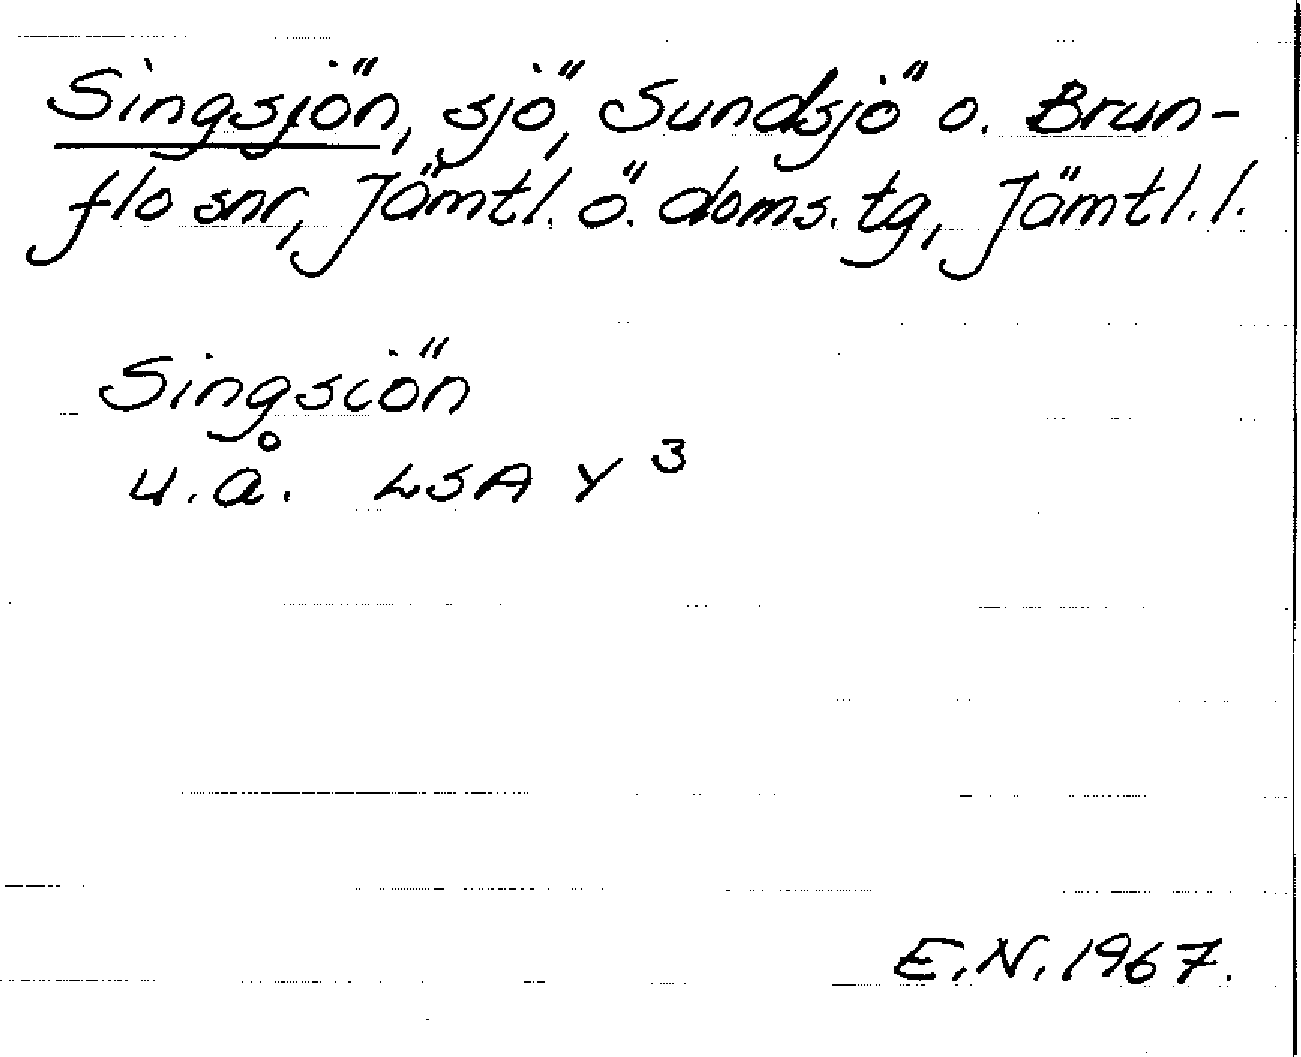 Singsjön, sjö, Sundsjö o. Brun-
flo snr, Jämtl. ö. doms. tg, Jämtl. l.
Singsiön
u.å. LSA Y 3
E.N. 1967.